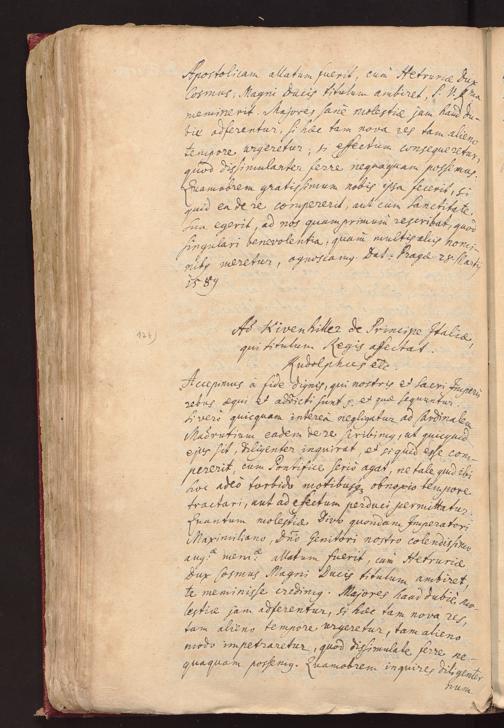 Apostolicam allatum fuerit, cum Hetruriæ Dux
Cosmus, Magni Ducis titulum ambiret, S. V.
meminerit. Majores sanè molestiæ jam haud du-
biè adferentur, si hæc tam nova res tam alieno
tempore urgeretur, si effectum consequeretur,
quod dissimulanter ferre nequaquam possemus.
Quamobrem gratissimum nobis ipsa fecerit, si
quid ea de re compererit, aut cum Sanctitate
sua egerit, ad nos quamprimum rescribat, quod
singulari benevolentia, quam multis aliis nomi-
nibs meretur, agnoscemus. Dat. Pragæ 28 Martij
1589
126)
Ad Kivenhiller de Principe Italiæ,
qui titulum Regis affectat.
Rudolphus etc.
Accepimus à fide dignis, qui nostris et Sacri Imperij
rebus æqui et addicti sunt, et quæ sequuntur.
Ne verò quicquam interea negligatur ad Cardinalem
Madrutium eadem de re scribimus, ut quicquid
ejus sit, diligenter inquirat, et si quid esse com-
pererit, cum Pontifice seriò agat, ne tale quid ibi
hoc adeò turbido motibusque obnoxio tempore
tractari, aut ad effectum perduci permittatur.
Quantum molestiæ Divo quondam Imperatori
Maximiliano, Dno Genitori nostro colendissimo
aug.æ mem.æ allatum fuerit, cum Hetruriæ
Dux Cosmus Magni Ducis titulum ambiret,
te meminisse credimus. Majores haud dubiè mo-
lestiæ jam adferentur, si hæc tam nova res,
tam alieno tempore urgeretur, tam alieno
modo impetraretur, quod dissimulate ferre ne-
quaquam possemus. Quamobrem inquires diligenter
num